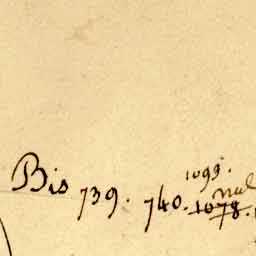 1099.
nul
Bis 739. 740. 1078.